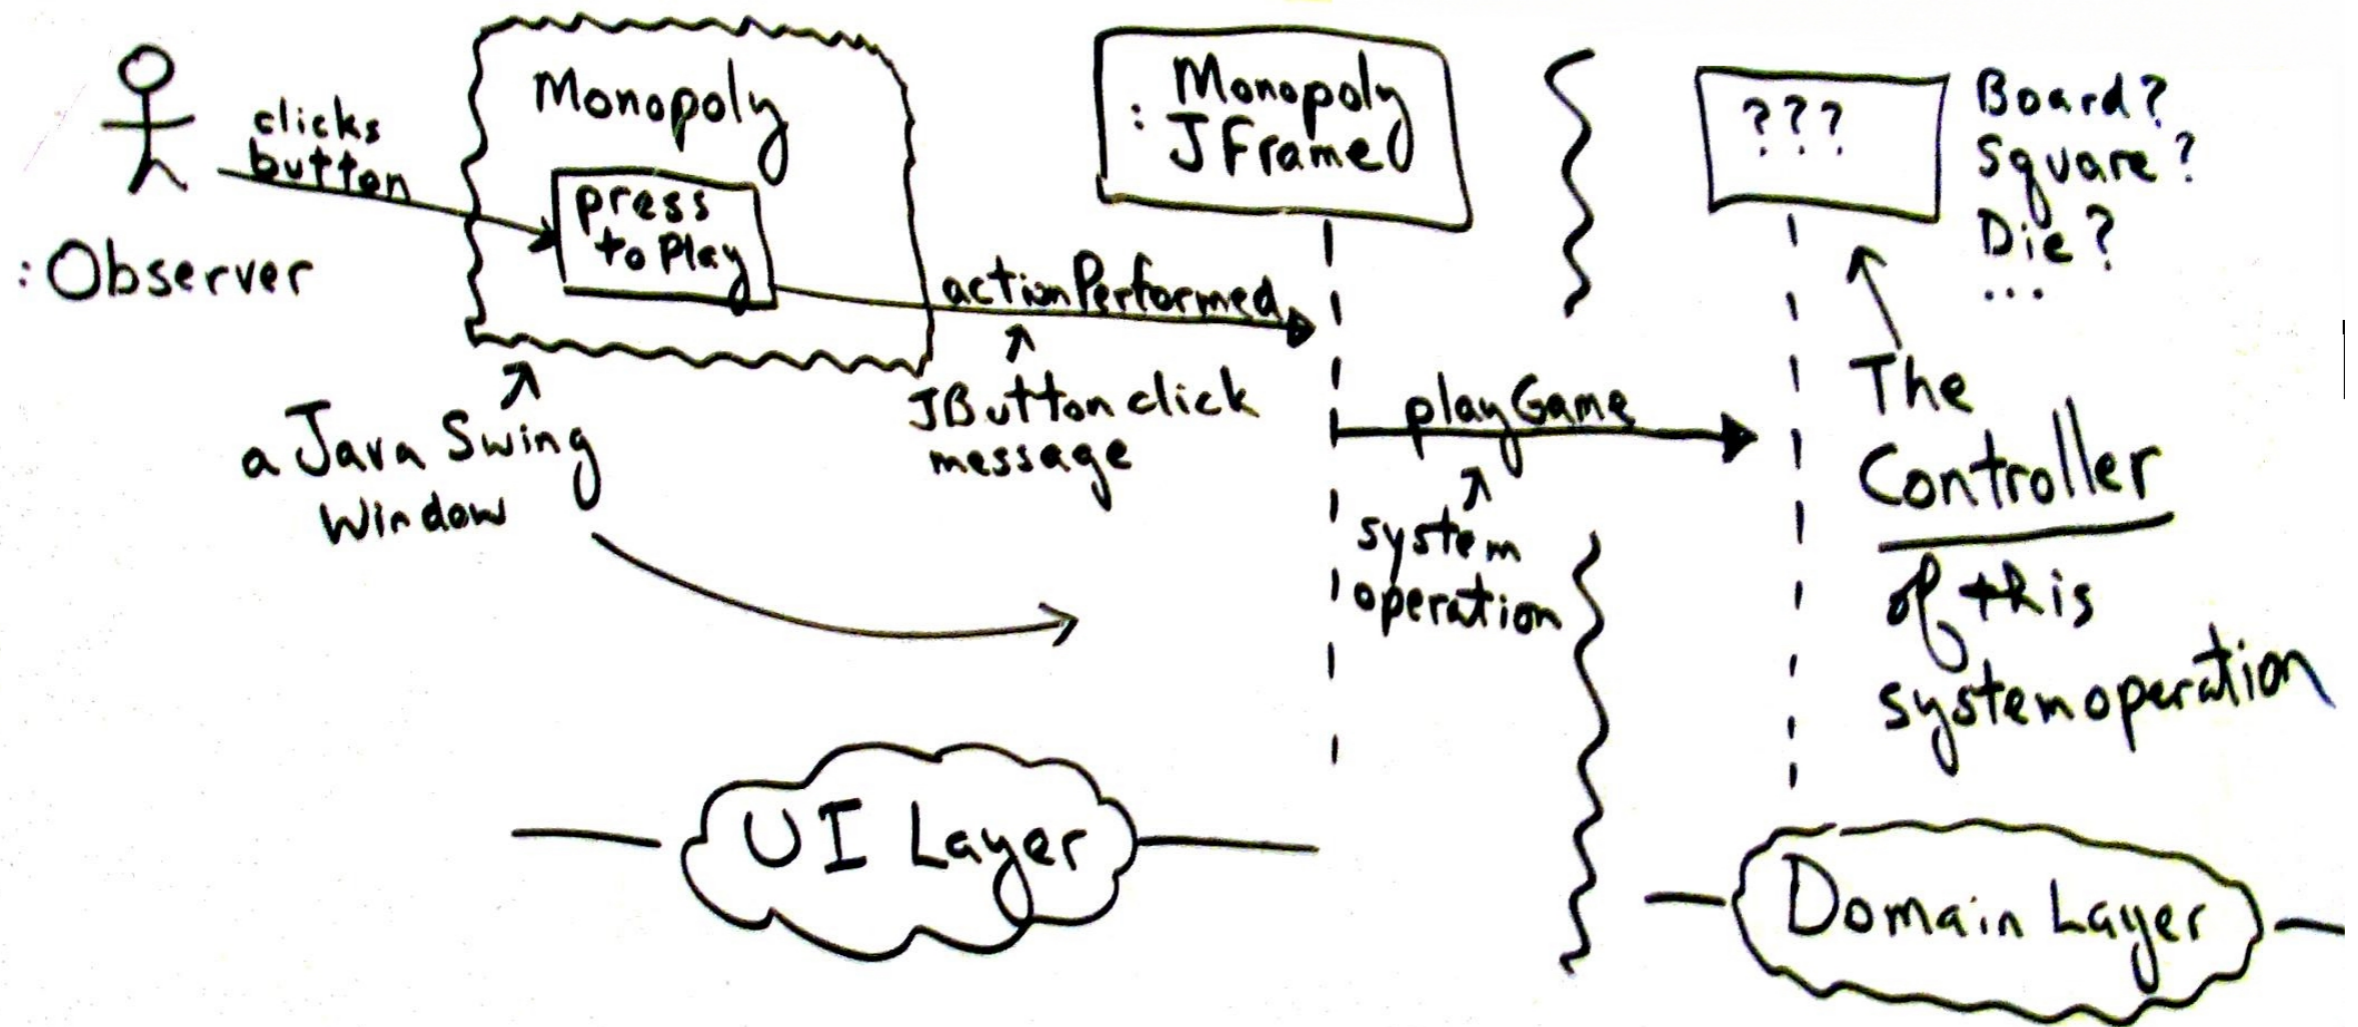 clicks
button
:Observer
Monopoly
press
to Play
a Java Swing
Window
actionPerformed
JButton click
message
Monopoly
: JFrame
playGame
system
operation
???
Board?
Square?
Die?
...
The
Controller
of this
system operation
UI Layer
Domain Layer